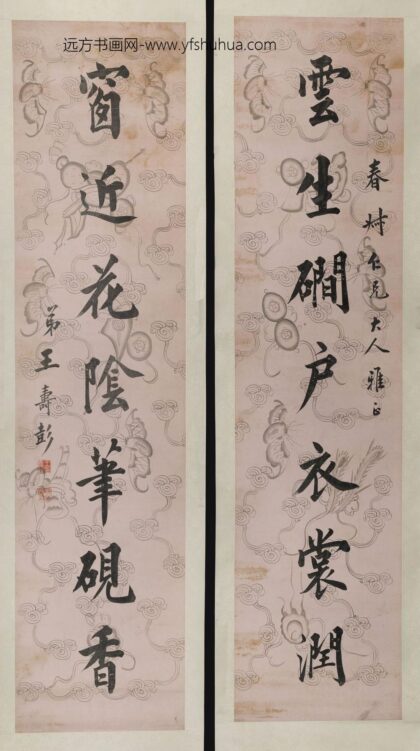 远方书画网-www.yfshuhua.com
雲生磵户衣裳潤
春烑仁兄大人雅正
窗近花陰筆硯香
弟王壽彭